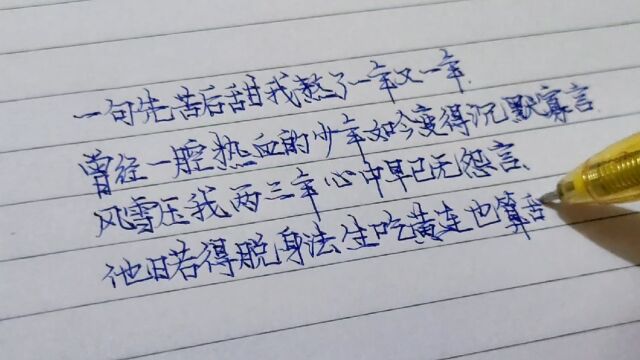 一句先苦后甜我熬了一年又一年
曾经一腔热血的少年如今变得沉默寡言
风雪压我两三年心中早已无怨言
他日若得脱身法生吃黄连也算